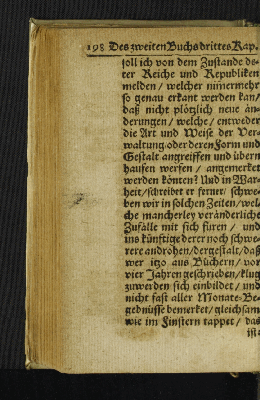 198 Des zweiten Buchs drittes Kap.
soll ich von dem Zustande de-
rer Reiche und Republiken
melden / welcher nim̄ermehr
so genau erkant werden kan /
daß nicht plötzlich neue än-
derungen / welche / entweder
die Art und Weise der Ver-
waltung oder deren Form und
Gestalt angreiffen und übern
hauffen werfen / angemerket
werden könten? Und in War-
heit / schreibet er ferner / schwe-
ben wir in solchen Zeiten / wel-
che mancherley veränderliche
Zufälle mit sich füren / und
uns künftige derer noch schwe-
rere androhen / dergestalt / daß
wer itzo aus Büchern / vor
vier Jahren geschrieben / klug
zuwerden sich einbildet / und
nicht fast aller Monate Be-
gebnüsse bemerket / gleichsam
wie im Finstern tappet / das
ist